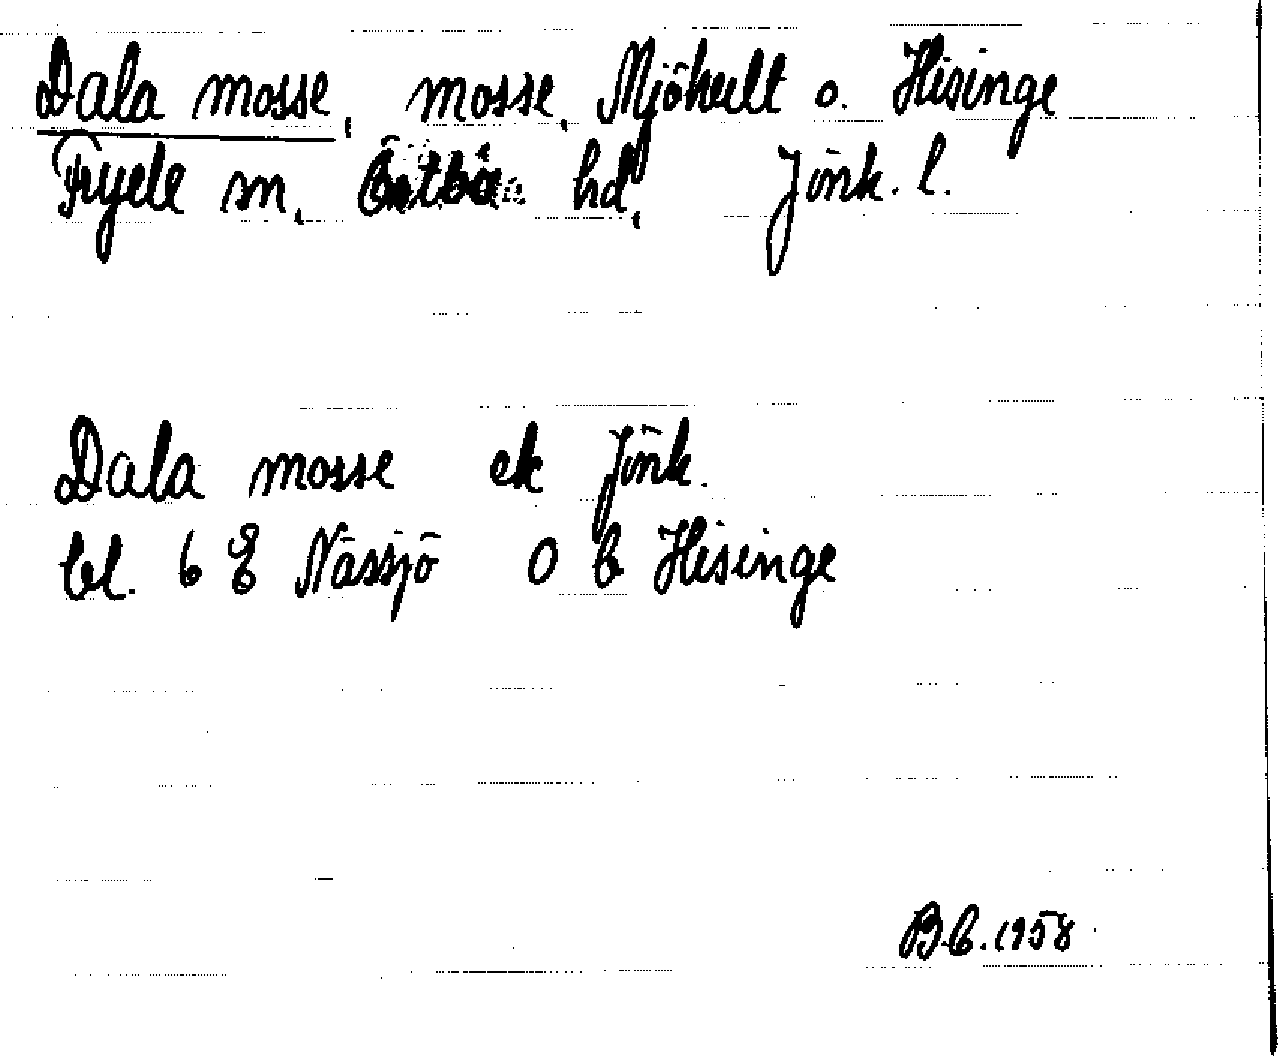 Dala mosse, mosse, Mjöhult o. Hisinge
Fryele sn, Östbo hd, Jönk. l.
Dala mosse ek Jönk.
bl. 6 E Nässjö 0 b Hisinge
B.C. 1958